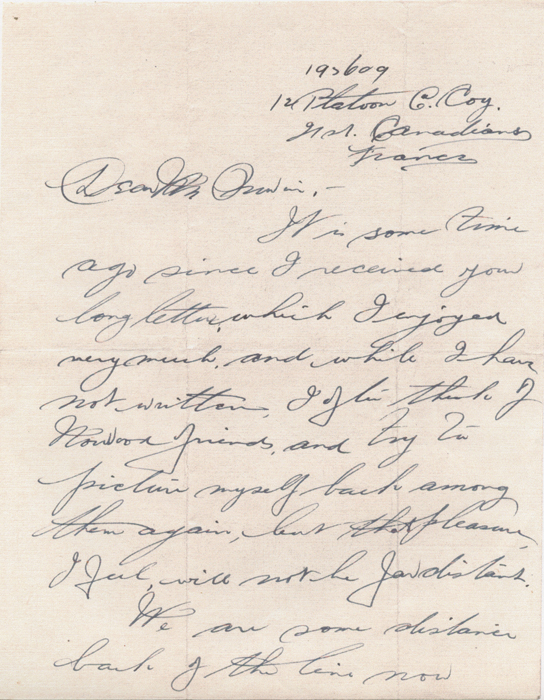 193609
12 Platoon C. Coy.
21st. Canadians
France
Dear Mr Irwin, -
It is some time
ago since I received your
long letter, which I enjoyed
very much, and while I have
not written, I often think of
Norwood friends, and try to
picture myself back among
them again, but that pleasure,
I feel, will not be far distant.
We are some distance
back of the line now